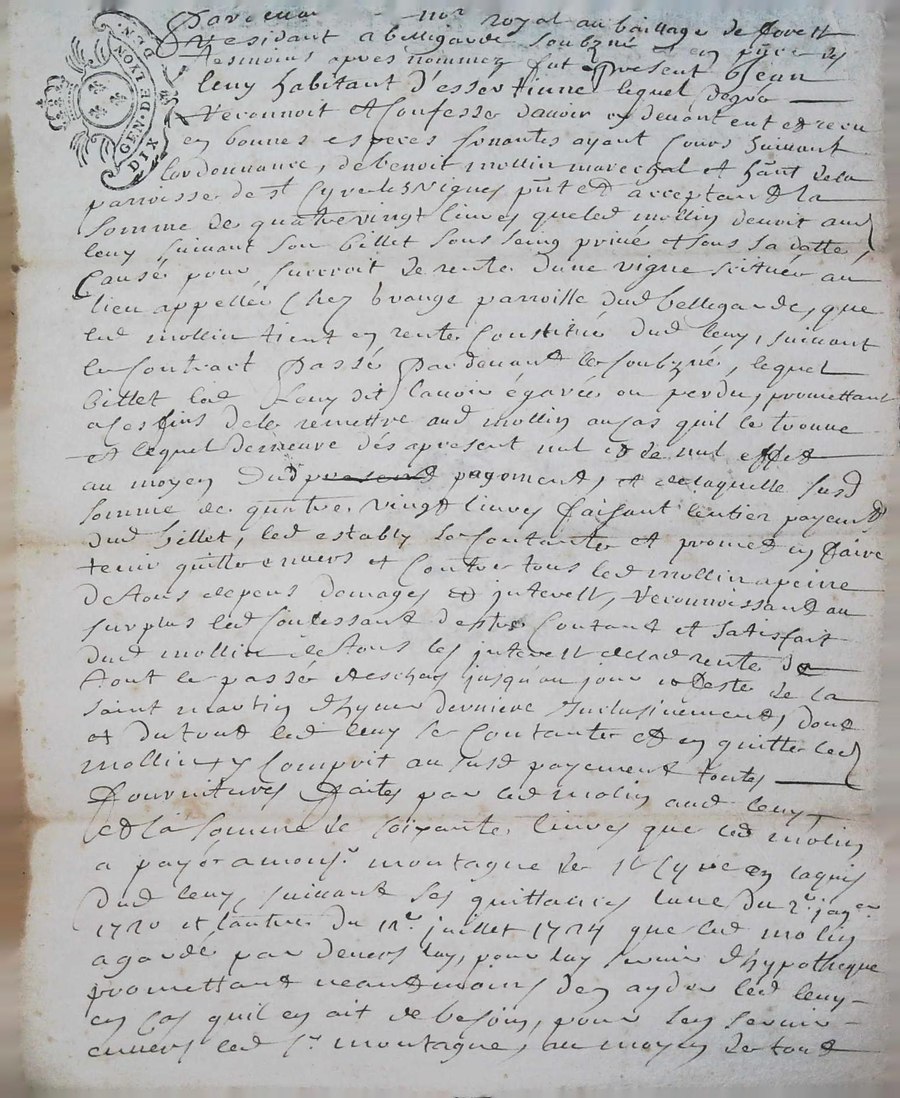 GEN. DE LYON DIX DEN.
Pardevant no.re royal au bailliage de forest
Residant a bellegarde soubzné et en p̃nce des
tesmoins aprés nommez fut present Jean
leny habitant d'essertinne lequel degré
reconnoit et Confesse davoir cy devant eut et receu
en bonnes especes sonantes ayant Cours suivant
lordonnance, de benoit mollin marechal et hãnt de la
parroisse de st Cyre les vignes p̃nt et acceptant la
somme de quatre vingt livres que led mollin devoit aud
leny suivant son billet sous seing privé et sous sa datte,
Causé pour surcroit de rente dune vigne scituée au
lieu appellée Chez brange parroisse dud bellegarde, que
led mollin tient en rente Constitué dud leny, suivant
le Contract passé pardevant le soubzné, lequel
billet led leny dit lavoir égaré ou perdu, promettant
a ses fins de le remettre aud mollin au cas quil le trouve
et lequel demeure dés apresent nul et de nul effet
au moyen dud present payement, et de laquelle susd
somme de quatre vingt livres faisant lentier payement
dud billet, led estably se Contante et promet en faire
tenir quitte envers et Contre tous led mollin a peine
de tous depens domages et interest, reconnoissant au
surplus led Confessant destre Contant et satisfait
dud mollin de tous les interest de lad rente de
tout le passé et eschus jusqu'au jour et feste de la
saint martin dhyver derniere Inclusivement, dont
et du tout led leny se Contante et en quitte led
mollin, y Compris au susd payement toutes
fournitures faites par led molin aud leny,
et la somme de soixante livres que led molin
a payér a mons.r montagne de st Cyre en laquis
dud leny, suivant ses quittances lune du 2.e janv.er
1720 et lautre du 12.e juillet 1724 que led molin
a gardé par devers luy, pour luy servir d'hypotheque
promettant neantmoins den ayder led leny
en Cas quil en ait de besoin, pour luy servir
envers led s.r montagne, au moyen de tout